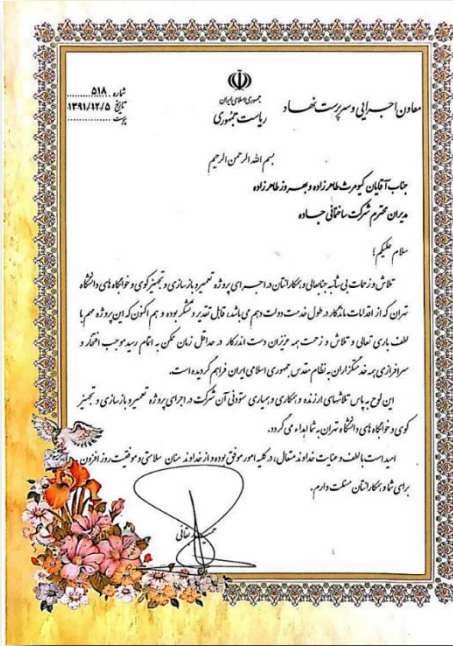 شماره ۵۱۸
تاریخ ۱۳۹۱/۱۲/۵
پیوست
جمهوری اسلامی ایران
ریاست جمهوری
معاون اجرایی و سرپرست نهاد
بسم الله الرحمن الرحیم
جناب آقایان کیومرث طاهرزاده و بهروز طاهرزاده
مدیران محترم شرکت ساختمانی جاده
سلام علیکم؛
تلاش و زحمات بی شائبه جنابعالی و همکارانتان در اجرای پروژه تعمیر و بازسازی و تجهیز کوی و خوابگاه های دانشگاه
تهران که از اقدامات ماندگار در طول خدمت دولت دهم می باشد، قابل تقدیر و تشکر بوده و هم اکنون که این پروژه مهم با
لطف باری تعالی و تلاش و زحمت همه عزیزان دست اندرکار در حداقل زمان ممکن به اتمام رسید موجب افتخار و
سرافرازی همه خدمتگزاران به نظام مقدس جمهوری اسلامی ایران فراهم گردیده است.
این لوح به پاس تلاشهای ارزنده و همکاری و همیاری ستودنی آن شرکت در اجرای پروژه تعمیر و بازسازی و تجهیز
کوی و خوابگاه های دانشگاه تهران به شما اهداء می گردد.
امید است با لطف و عنایت خداوند متعال، در کلیه امور موفق بوده و از خداوند منان سلامتی و موفقیت روز افزون
برای شما و همکارانتان مسئلت دارم.